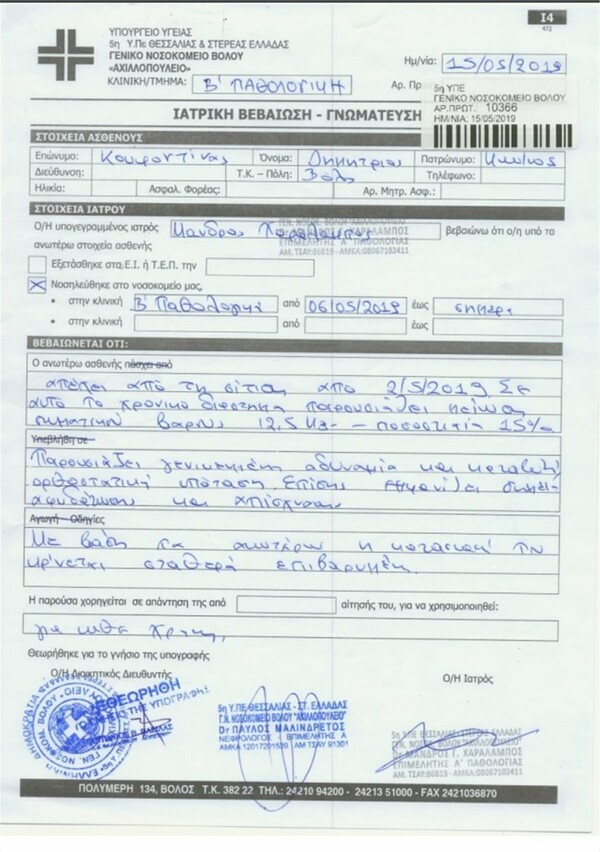 I4
472
ΥΠΟΥΡΓΕΙΟ ΥΓΕΙΑΣ
5η Υ.Πε ΘΕΣΣΑΛΙΑΣ & ΣΤΕΡΕΑΣ ΕΛΛΑΔΑΣ
ΓΕΝΙΚΟ ΝΟΣΟΚΟΜΕΙΟ ΒΟΛΟΥ
«ΑΧΙΛΛΟΠΟΥΛΕΙΟ»
ΚΛΙΝΙΚΗ/ΤΜΗΜΑ: Β' ΠΑΘΟΛΟΓΙΚΗ
Ημ/νία: 15/05/2019
Αρ. Πρ
5η ΥΠΕ
ΓΕΝΙΚΟ ΝΟΣΟΚΟΜΕΙΟ ΒΟΛΟΥ
ΑΡ.ΠΡΩΤ.: 10366
ΗΜ/ΝΙΑ: 15/05/2019
ΙΑΤΡΙΚΗ ΒΕΒΑΙΩΣΗ - ΓΝΩΜΑΤΕΥΣΗ
ΣΤΟΙΧΕΙΑ ΑΣΘΕΝΟΥΣ
Επώνυμο: Κουφοντίνας Όνομα: Δημήτριος Πατρώνυμο:
Διεύθυνση: Τ.Κ. – Πόλη: Βόλος Τηλέφωνο:
Ηλικία: Ασφαλ. Φορέας: Αρ. Μητρ. Ασφ.:
ΣΤΟΙΧΕΙΑ ΙΑΤΡΟΥ
Ο/Η υπογεγραμμένος ιατρός Μάνδρος Χαράλαμπος βεβαιώνω ότι ο/η υπό τα
ανωτέρω στοιχεία ασθενής
Εξετάσθηκε στα Ε.Ι. ή Τ.Ε.Π. την
Νοσηλεύθηκε στο νοσοκομείο μας,
• στην κλινική Β' Παθολογική από 06/05/2019 έως σήμερα
• στην κλινική από έως
ΒΕΒΑΙΩΝΕΤΑΙ ΟΤΙ:
Ο ανωτέρω ασθενής πάσχει από
απέχει από τη σίτιση από 2/5/2019 Σε
αυτό το χρονικό διάστημα παρουσιάζει μείωση
σωματικού βάρους 12,5 – ποσοστιαία 15%
Υπεβλήθη σε
Παρουσιάζει γενικευμένη αδυναμία και καταβολή
ορθοστατική υπόταση Επίσης εμφανίζει σημεία
αφυδάτωσης και απίσχνανσης
Αγωγή – Οδηγίες
Με βάση τα ανωτέρω η κατάσταση του
κρίνεται σταθερά επιβαρυμένη
Η παρούσα χορηγείται σε απάντηση της από αίτησής του, για να χρησιμοποιηθεί:
για κάθε χρήση
Θεωρήθηκε για το γνήσιο της υπογραφής
Ο/Η Διοικητικός Διευθυντής
Ο/Η Ιατρός
ΘΕΩΡΗΘΗ
5η Υ.ΠΕ ΘΕΣΣΑΛΙΑΣ - ΣΤ. ΕΛΛΑΔΑΣ
Γ.Ν. ΝΟΣΟΚΟΜΕΙΟ ΒΟΛΟΥ "ΑΧΙΛΛΟΠΟΥΛΕΙΟ"
Dr ΠΑΥΛΟΣ ΜΑΛΙΝΔΡΕΤΟΣ
ΝΕΦΡΟΛΟΓΟΣ - ΕΠΙΜΕΛΗΤΗΣ Α
ΑΜΚΑ 12017201539 ΑΜ ΤΣΑΥ 91301
Dr ΜΑΝΔΡΟΣ Γ. ΧΑΡΑΛΑΜΠΟΣ
ΕΠΙΜΕΛΗΤΗΣ Α' ΠΑΘΟΛΟΓΙΑΣ
ΑΜ. ΤΣΑΥ:86819 - ΑΜΚΑ:08067103411
ΠΟΛΥΜΕΡΗ 134, ΒΟΛΟΣ Τ.Κ. 382 22 ΤΗΛ.: 24210 94200 - 24213 51000 - FAX 2421036870